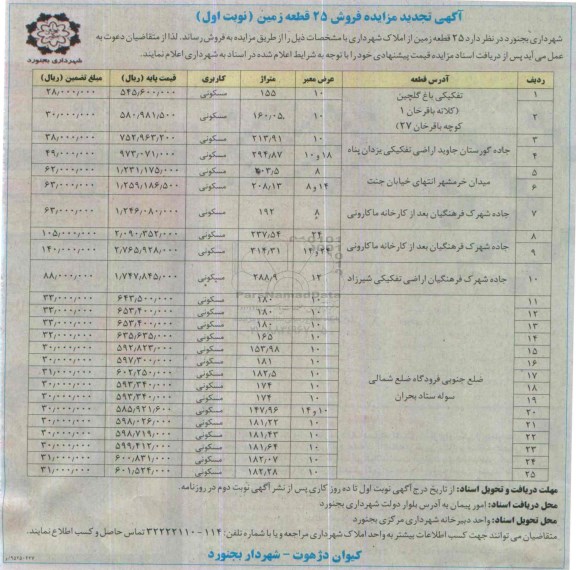 آگهی تجدید مزایده فروش ۲۵ قطعه زمین (نوبت اول)
شهرداری بجنورد
شهرداری بجنورد در نظر دارد ۲۵ قطعه زمین از املاک شهرداری با مشخصات ذیل را از طریق مزایده به فروش رساند. لذا از متقاضیان دعوت به
عمل می آید پس از دریافت اسناد مزایده قیمت پیشنهادی خود را با توجه به شرایط اعلام شده در اسناد به شهرداری اعلام نمایند.
ردیف آدرس قطعه عرض معبر متراژ کاربری قیمت پایه (ریال) مبلغ تضمین (ریال)
۱ تفکیکی باغ گلچین ۱۰ ۱۵۵ مسکونی ۵۴۵٫۶۰۰٫۰۰۰ ۲۸٫۰۰۰٫۰۰۰
۲ (کلاته باقرخان ۱ کوچه باقرخان ۲۷) ۱۰ ۱۶۰٫۰۵ مسکونی ۵۸۰٫۹۸۱٫۵۰۰ ۳۰٫۰۰۰٫۰۰۰
۳ ۱۰ ۲۱۳٫۹۱ مسکونی ۷۵۲٫۹۶۳٫۲۰۰ ۳۸٫۰۰۰٫۰۰۰
جاده گورستان جاوید اراضی تفکیکی یزدان پناه
۴ ۱۸ و ۱۰ ۲۹۴٫۸۷ مسکونی ۹۷۳٫۰۷۱٫۰۰۰ ۴۹٫۰۰۰٫۰۰۰
۵ ۸ مسکونی ۱٫۲۳۱٫۱۷۵٫۰۰۰ ۶۲٫۰۰۰٫۰۰۰
میدان خرمشهر انتهای خیابان جنت
۶ ۱۴ و ۸ ۲۰۸٫۱۳ مسکونی ۱٫۲۵۹٫۱۸۶٫۵۰۰ ۶۳٫۰۰۰٫۰۰۰
۷ جاده شهرک فرهنگیان بعد از کارخانه ماکارونی ۸ ۱۹۲ مسکونی ۱٫۲۴۶٫۰۸۰٫۰۰۰ ۶۳٫۰۰۰٫۰۰۰
۸ ۲۴ ۲۳۷٫۵۴ مسکونی ۲٫۰۹۰٫۳۵۲٫۰۰۰ ۱۰۵٫۰۰۰٫۰۰۰
جاده شهرک فرهنگیان بعد از کارخانه ماکارونی
۹ ۳۱۴٫۳۱ مسکونی ۲٫۷۶۵٫۹۲۸٫۰۰۰ ۱۴۰٫۰۰۰٫۰۰۰
۱۰ جاده شهرک فرهنگیان اراضی تفکیکی شیرزاد ۱۲ ۲۸۸٫۹ مسکونی ۱٫۷۴۷٫۸۴۵٫۰۰۰ ۸۸٫۰۰۰٫۰۰۰
۱۱ ۱۰ ۱۸۰ مسکونی ۶۴۳٫۵۰۰٫۰۰۰ ۳۳٫۰۰۰٫۰۰۰
۱۲ ۱۰ ۱۸۰ مسکونی ۶۵۳٫۴۰۰٫۰۰۰ ۳۳٫۰۰۰٫۰۰۰
۱۳ ۱۰ ۱۸۰ مسکونی ۶۵۳٫۴۰۰٫۰۰۰ ۳۳٫۰۰۰٫۰۰۰
۱۴ ۱۰ ۱۶۵ مسکونی ۶۳۵٫۶۳۵٫۰۰۰ ۳۲٫۰۰۰٫۰۰۰
۱۵ ۱۰ ۱۵۳٫۹۸ مسکونی ۵۹۲٫۸۲۳٫۰۰۰ ۳۰٫۰۰۰٫۰۰۰
۱۶ ۱۰ ۱۸۱ مسکونی ۵۹۷٫۳۰۰٫۰۰۰ ۳۰٫۰۰۰٫۰۰۰
۱۷ ۱۰ ۱۸۲٫۵ مسکونی ۶۰۲٫۲۵۰٫۰۰۰ ۳۱٫۰۰۰٫۰۰۰
ضلع جنوبی فرودگاه ضلع شمالی
۱۸ ۱۰ ۱۷۴ مسکونی ۵۹۳٫۳۴۰٫۰۰۰ ۳۰٫۰۰۰٫۰۰۰
سوله ستاد بحران
۱۹ ۱۰ ۱۷۴ مسکونی ۵۹۳٫۳۴۰٫۰۰۰ ۳۰٫۰۰۰٫۰۰۰
۲۰ ۱۰ و ۱۴ ۱۴۷٫۹۶ مسکونی ۵۸۵٫۹۲۱٫۶۰۰ ۳۰٫۰۰۰٫۰۰۰
۲۱ ۱۰ ۱۸۱٫۲۲ مسکونی ۵۹۸٫۰۲۶٫۰۰۰ ۳۰٫۰۰۰٫۰۰۰
۲۲ ۱۰ ۱۸۱٫۴۳ مسکونی ۵۹۸٫۷۱۹٫۰۰۰ ۳۰٫۰۰۰٫۰۰۰
۲۳ ۱۰ ۱۸۱٫۶۴ مسکونی ۵۹۹٫۴۱۲٫۰۰۰ ۳۰٫۰۰۰٫۰۰۰
۲۴ ۱۰ ۱۸۲٫۰۷ مسکونی ۶۰۰٫۸۳۱٫۰۰۰ ۳۱٫۰۰۰٫۰۰۰
۲۵ ۱۰ ۱۸۲٫۲۸ مسکونی ۶۰۱٫۵۲۴٫۰۰۰ ۳۱٫۰۰۰٫۰۰۰
مهلت دریافت و تحویل اسناد: از تاریخ درج آگهی نوبت اول تا ده روز کاری پس از نشر آگهی نوبت دوم در روزنامه.
محل دریافت اسناد: امور پیمان به آدرس بلوار دولت شهرداری بجنورد
محل تحویل اسناد: واحد دبیرخانه شهرداری مرکزی بجنورد
متقاضیان می توانند جهت کسب اطلاعات بیشتر به واحد املاک شهرداری مراجعه و یا با شماره تلفن: ۱۱۴-۳۲۲۲۲۱۱۰ تماس حاصل و کسب اطلاع نمایند.
کیوان دژهوت - شهردار بجنورد